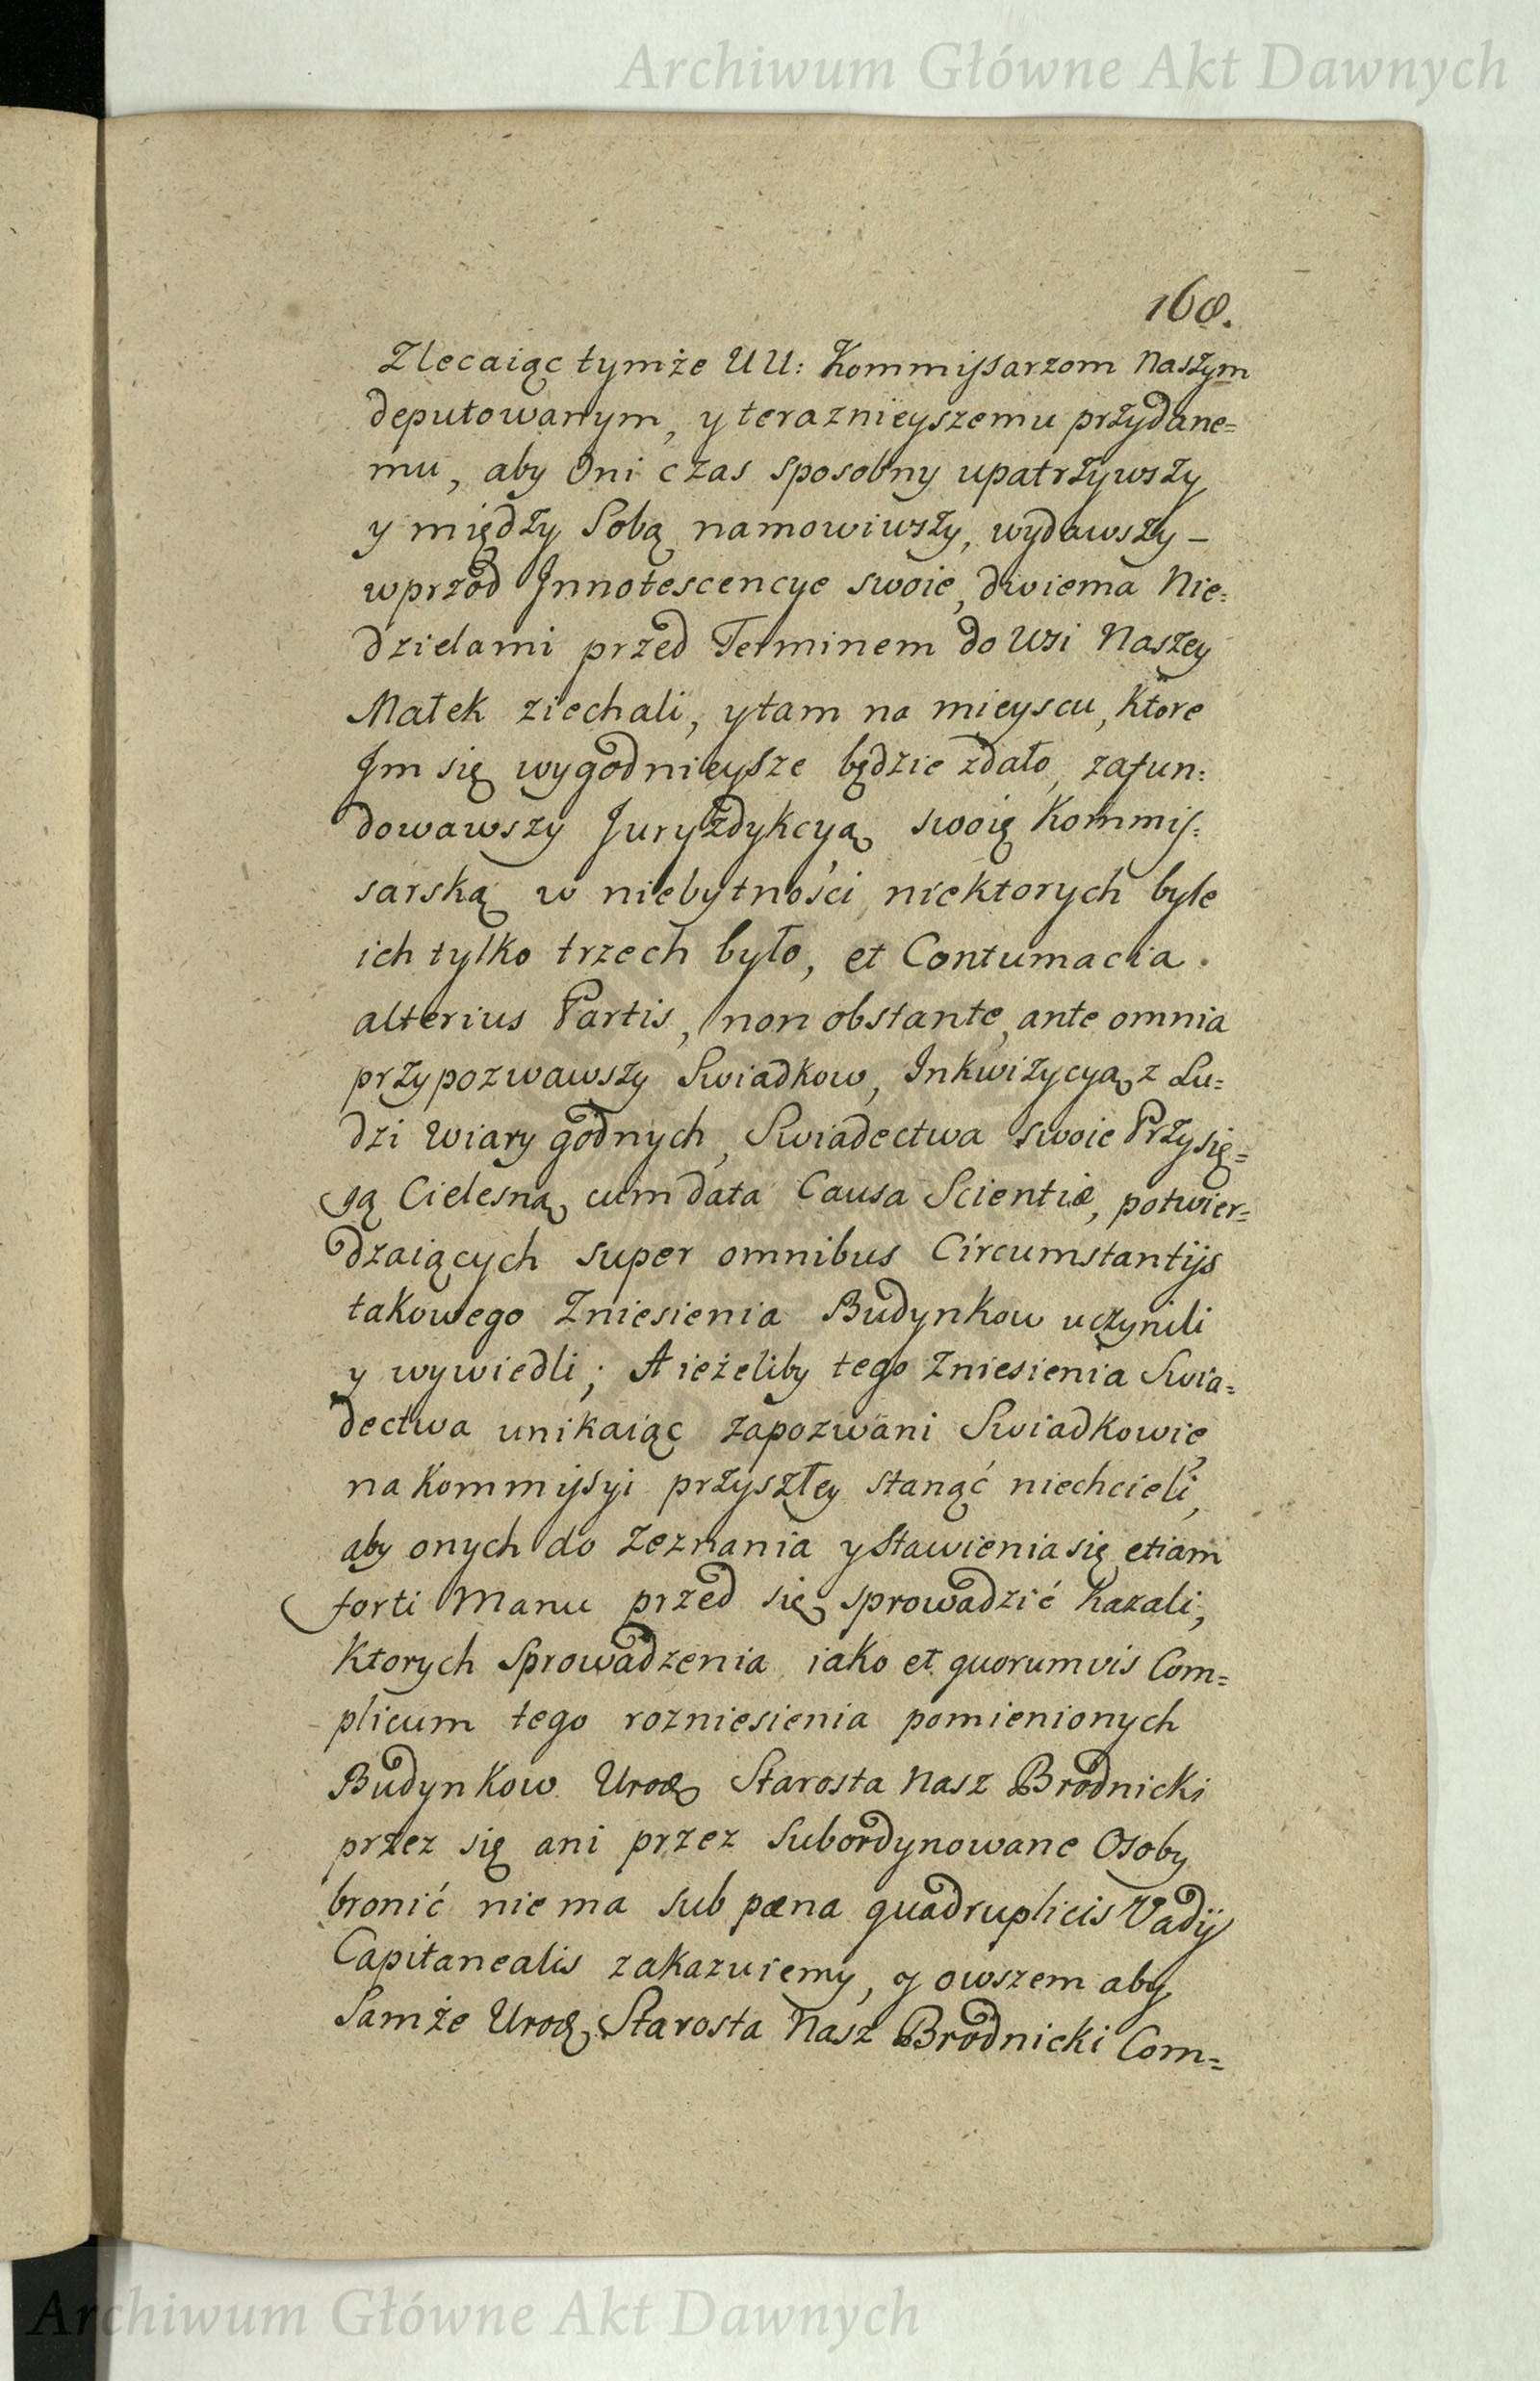 Archiwum Główne Akt Dawnych
168.
Zlecaiąc tymże UU: Kommissarzom Naszym
deputowanym, y teraznieyszemu przydane=
mu, aby Oni czas sposobny upatrzywszy
y między Sobą namowiwszy, wydawszy –
wprzod Innotescencye swoie, dwiema Nie=
dzielami przed Terminem do Wsi Naszey
Małek ziechali, y tam na mieyscu, Ktore
Im się wygodnieysze będzie zdało, zafun=
dowawszy Juryzdykcyą swoię Kommis=
sarską w niebytności niektorych byle
ich tylko trzech było, et Contumacia
alterius Partis, non obstante, ante omnia
przypozwawszy Swiadkow, Inkwizycyą z Lu=
dzi Wiary godnych, Swiadectwa swoie Przysię=
gą Cielesną cum data Causa Scientiæ, potwier=
dzaiących super omnibus Circumstantijs
takowego Zniesienia Budynkow uczynili
y wywiedli; A ieżeliby tego Zniesienia Swia=
dectwa unikaiąc zapozwani Swiadkowie
na Kommissyi przyszłey stanąć niechcieli,
aby onych do Zeznania y Stawienia się etiam
forti Manu przed się sprowadzić Kazali,
Ktorych Sprowadzenia iako et quorumvis Com=
plicum tego rozniesienia pomienionych
Budynkow Urod Starosta Nasz Brodnicki
przez się ani przez Subordynowane Osoby
bronić nie ma sub pæna quadruplicis Vadij
Capitanealis zakazuiemy, y owszem aby
Samże Urod Starosta Nasz Brodnicki Com=
Archiwum Główne Akt Dawnych